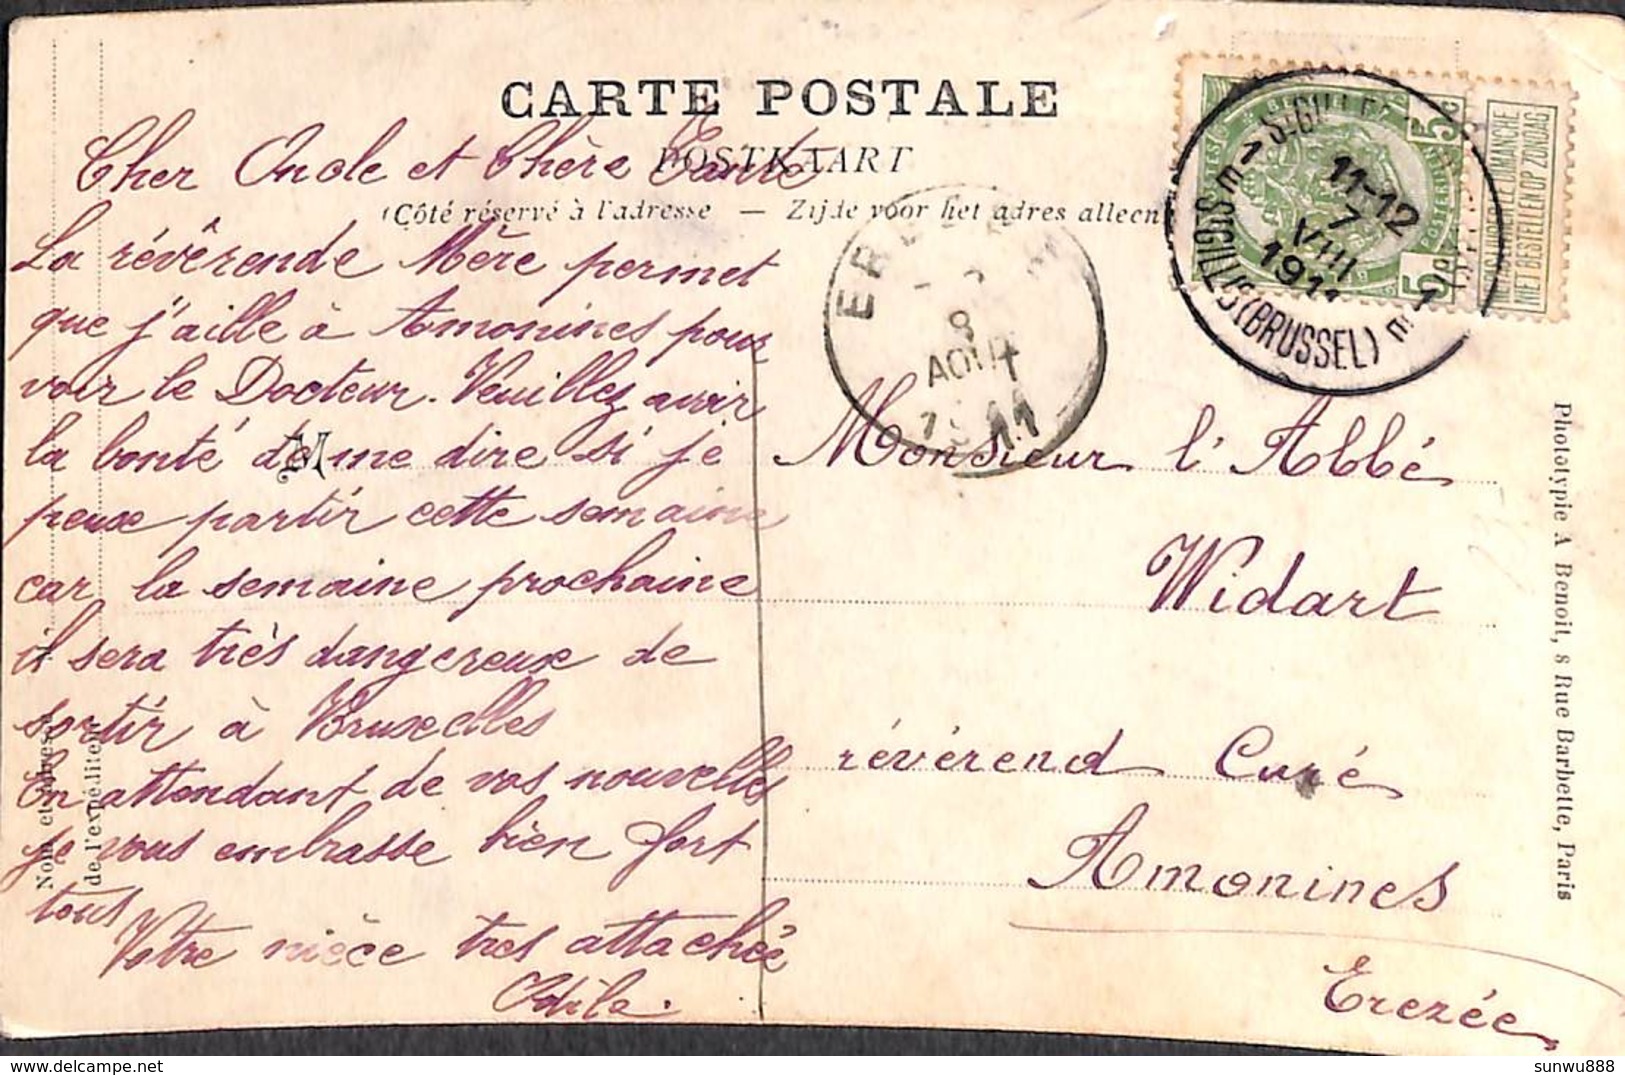 CARTE POSTALE
POSTKAART
(Côté réservé à l'adresse — Zijde voor het adres alleen
Cher Oncle et Chère Tante
La révérende Mère permet
que j'aille à Amonines pour
voir le Docteur. Veuillez avoir
la bonté de me dire si je
peux partir cette semaine
car la semaine prochaine
il sera très dangereux de
sortir à Bruxelles
En attendant de vos nouvelles
je vous embrasse bien fort
tous
Votre nièce très attachée
Odile.
M
Monsieur l'Abbé
Widart
révérend Curé
Amonines
Erezée
Nom et adresse
de l'expéditeur
Phototypie A Benoit, 8 Rue Barbelle, Paris
11-12
7
VIII
1911
(BRUSSEL)
8
AOUT
1911
5c
5c
NE PAS LIVRER LE DIMANCHE
NIET BESTELLEN OP ZONDAG
sunwu888